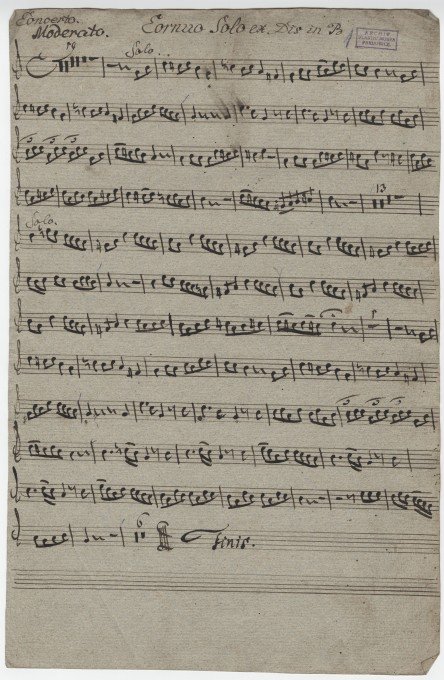 Concerto.
Moderato.
Cornuo Solo ex. Dis in B
ARCHIV
Solo.
13
Solo.
3 3 3
3 3 3
6
Finis.